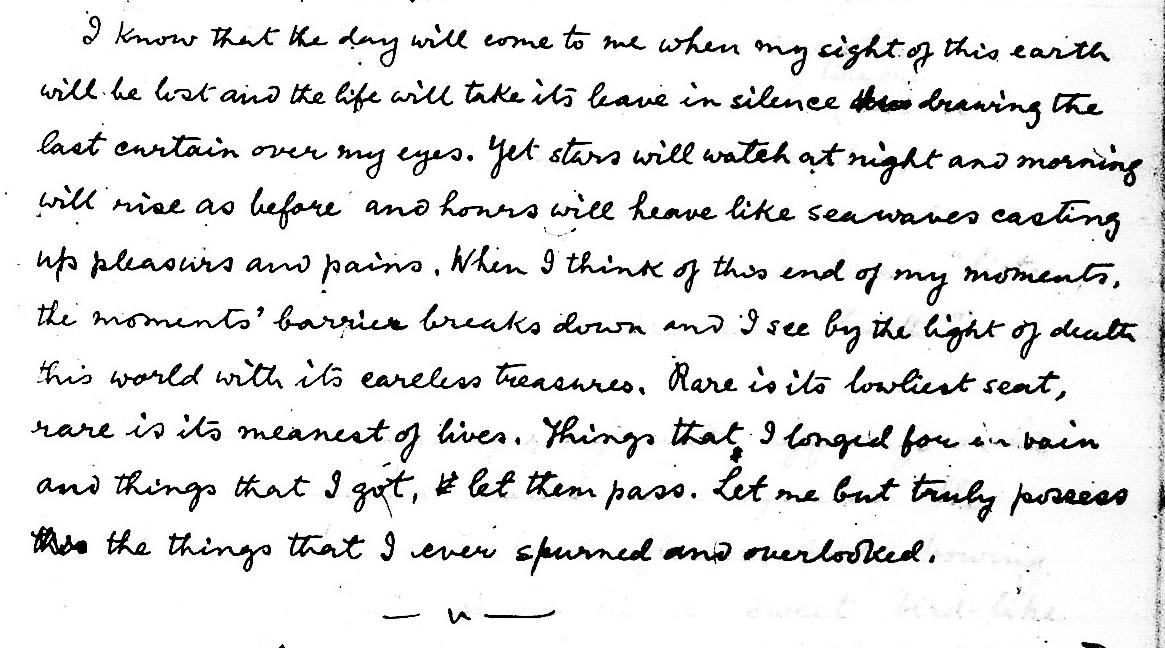 I know that the day will come to me when my sight of this earth
will be lost and the life will take its leave in silence drawing the
last curtain over my eyes. Yet stars will watch at night and morning
will rise as before and hours will heave like sea waves casting
up pleasurs and pains. When I think of this end of my moments,
the moments' barrier breaks down and I see by the light of death
this world with its careless treasures. Rare is its lowliest seat,
rare is its meanest of lives. Things that I longed for in vain
and things that I got, let them pass. Let me but truly possess
the things that I ever spurned and overlooked.